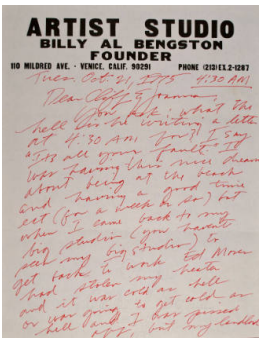 ARTIST STUDIO
BILLY AL BENGSTON
FOUNDER
110 MILDRED AVE. · VENICE, CALIF. 90291 PHONE (213) EX.2-1287
Tues. Oct. 21, 1975 4:30 AM
Dear Cliff & Joanna,
You ask: what the
hell is he writing a letter
at 4:30 AM for? I say
"Its all your fault." I
was having this nice dream
about being at the beach
and having a good time
ect (for a week or so) but
when I came back to my
big studio (you haven't
seen my big studio) to
get back to work Ed Moses
had stolen my heater
and it was cold as hell
or was going to get cold as
hell and I was pissed
off, but my landlord